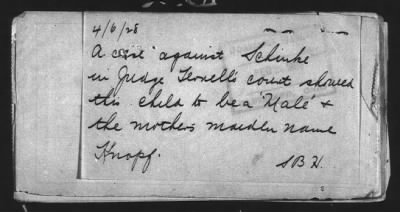 4/6/28
A case against Schinke
in Judge Terrell's court showed
this child to be a "Male" &
the mothers maiden name
Knopf.
SBH.